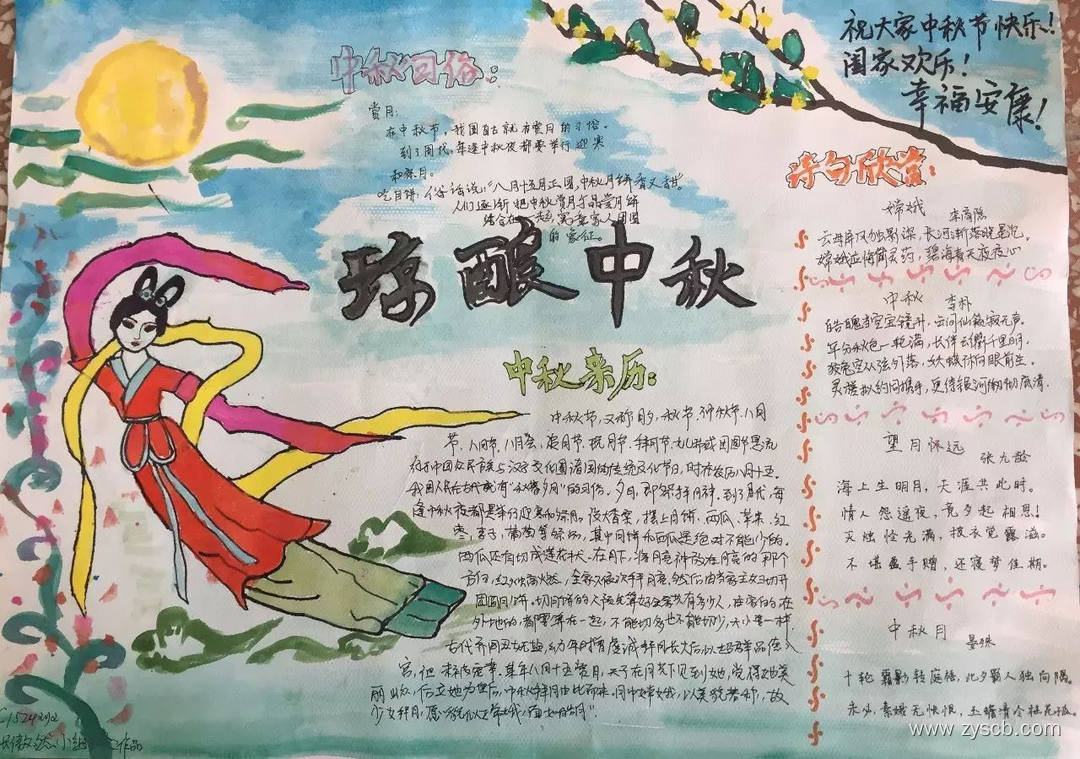 祝大家中秋节快乐!
阖家欢乐!
幸福安康!
中秋习俗:
赏月:
在中秋节,我国自古就有赏月的习俗。
到了周代,每逢中秋夜都要举行迎寒
和祭月。
吃月饼:俗话说:"八月十五月正圆,中秋月饼香又甜"
人们逐渐把中秋赏月与品尝月饼
结合在一起,寓意家人团圆
的象征。
琼酿中秋
诗句欣赏:
嫦娥 李商隐
云母屏风烛影深,长河渐落晓星沉。
嫦娥应悔偷灵药,碧海青天夜夜心
中秋 李朴
皓魄当空宝镜升,云间仙籁寂无声。
平分秋色一轮满,长伴云衢千里明。
狡兔空从弦外落,妖蟆休向眼前生。
灵槎拟约同携手,更待银河彻底清.
望月怀远
张九龄
海上生明月,天涯共此时。
情人怨遥夜,竟夕起相思!
灭烛怜光满,披衣觉露滋。
不堪盈手赠,还寝梦佳期。
中秋月
晏殊
十轮霜影转庭梧,此夕羁人独向隅。
未必素娥无怅恨,玉蟾清冷桂花孤。
中秋来历:
中秋节,又称月夕、秋节、仲秋节、八月
节、八月会、追月节、玩月节、拜月节、女儿节或团圆节,是流
行于中国众民族与汉字文化圈诸国的传统文化节日,时在农历八月十五。
我国人民在古代就有"秋暮夕月"的习俗。夕月,即祭拜月神。到了周代,每
逢中秋夜都要举行迎寒和祭月。设大香案,摆上月饼、西瓜、苹果、红
枣、李子、葡萄等祭品,其中月饼和西瓜是绝对不能少的。
西瓜还要切成莲花状。在月下,将月亮神放在月亮的那个
方向,红烛高燃,全家人依次拜月亮,然后由当家主妇切开
团圆月饼。切月饼的人预先算好全家共有多少人,在家的、在
外地的,都要算在一起,不能切多也不能切少,大小要一样。
古代齐国丑女无盐,幼年时曾虔诚拜月,长大后,以超群品德入
宫,但未被宠幸。某年八月十五赏月,天子在月光下见到她,觉得她美
丽出众,后立她为皇后,中秋拜月由此而来。月中嫦娥,以美貌著称,故
少女拜月,愿"貌似嫦娥,面如皓月"
小组 作品
www.zyscb.com